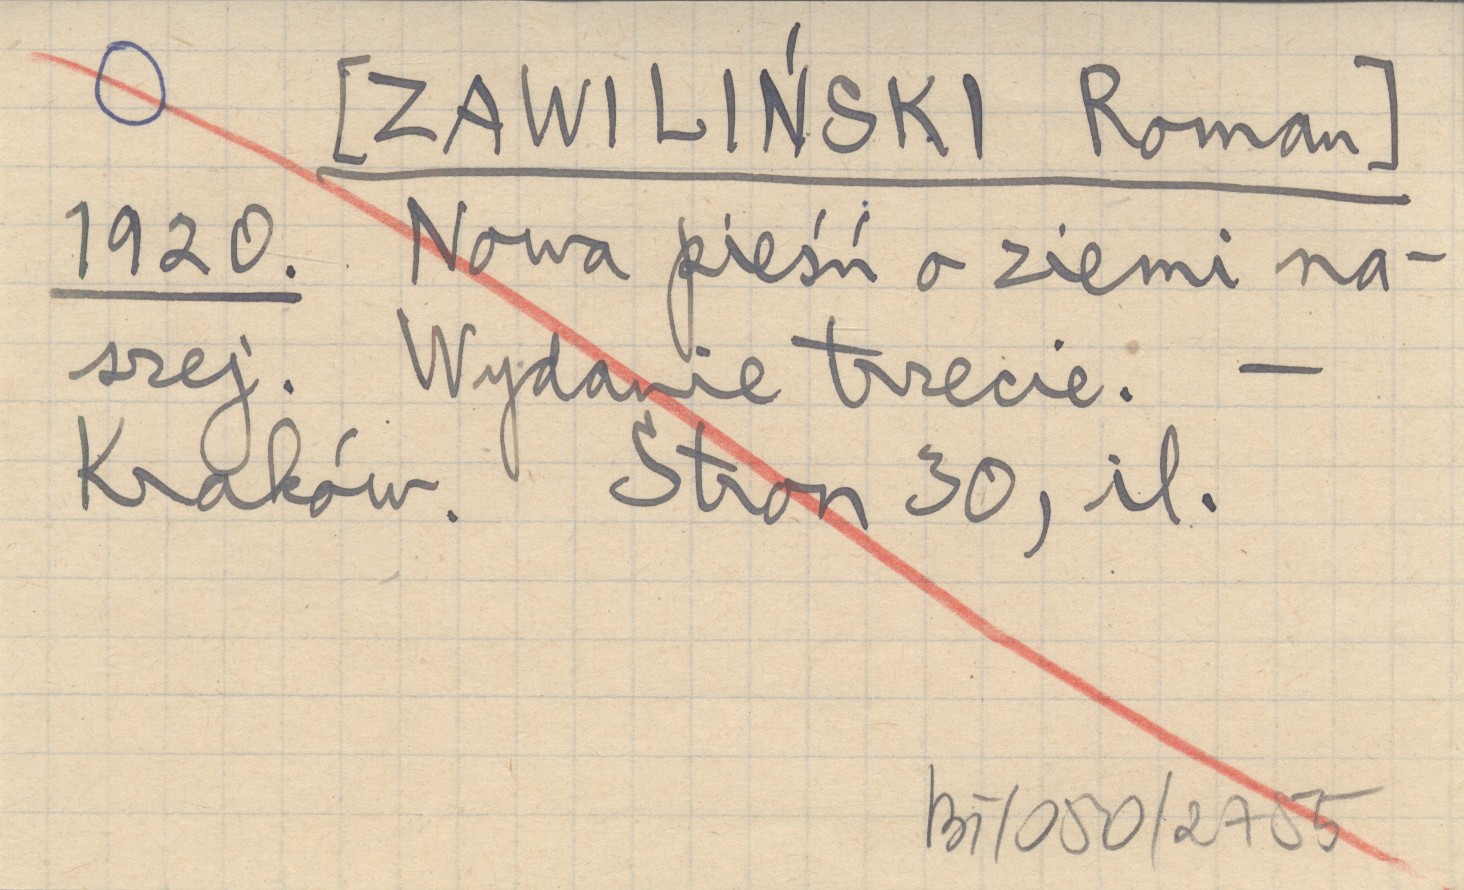 [ZAWILIŃSKI Roman]
1920. Nowa pieśń o ziemi na-
szej. Wydanie trzecie. —
Kraków. Stron 30, il.
BI/050/2755